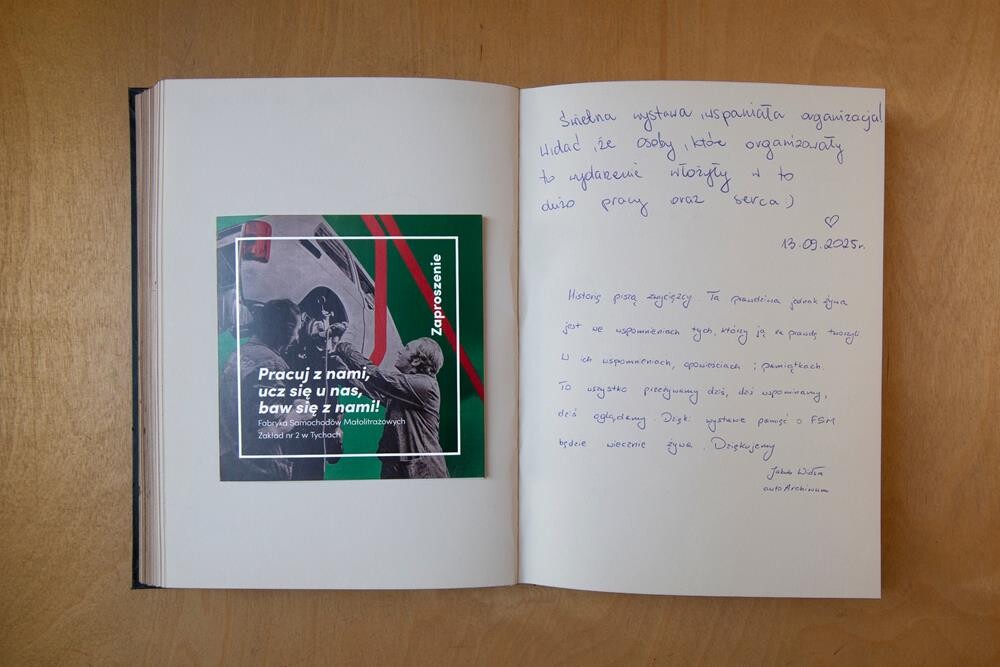 Zaproszenie
Pracuj z nami,
ucz się u nas,
baw się z nami!
Fabryka Samochodów Małolitrażowych
Zakład nr 2 w Tychach
Świetna wystawa, wspaniała organizacja!
Widać, że osoby, które organizowały
to wydarzenie włożyły w to
dużo pracy oraz serca :)
♡
13.09.2025r.
Historię piszą zwycięzcy. Ta prawdziwa jednak żywa
jest we wspomnieniach tych, którzy ją na prawdę tworzyli.
W ich wspomnieniach, opowieściach i pamiątkach.
To wszystko przeżywamy dziś, dziś wspominamy,
dziś oglądamy. Dzięki wystawie pamięć o FSM
będzie wiecznie żywa. Dziękujemy
Jakub
autoArchiwum